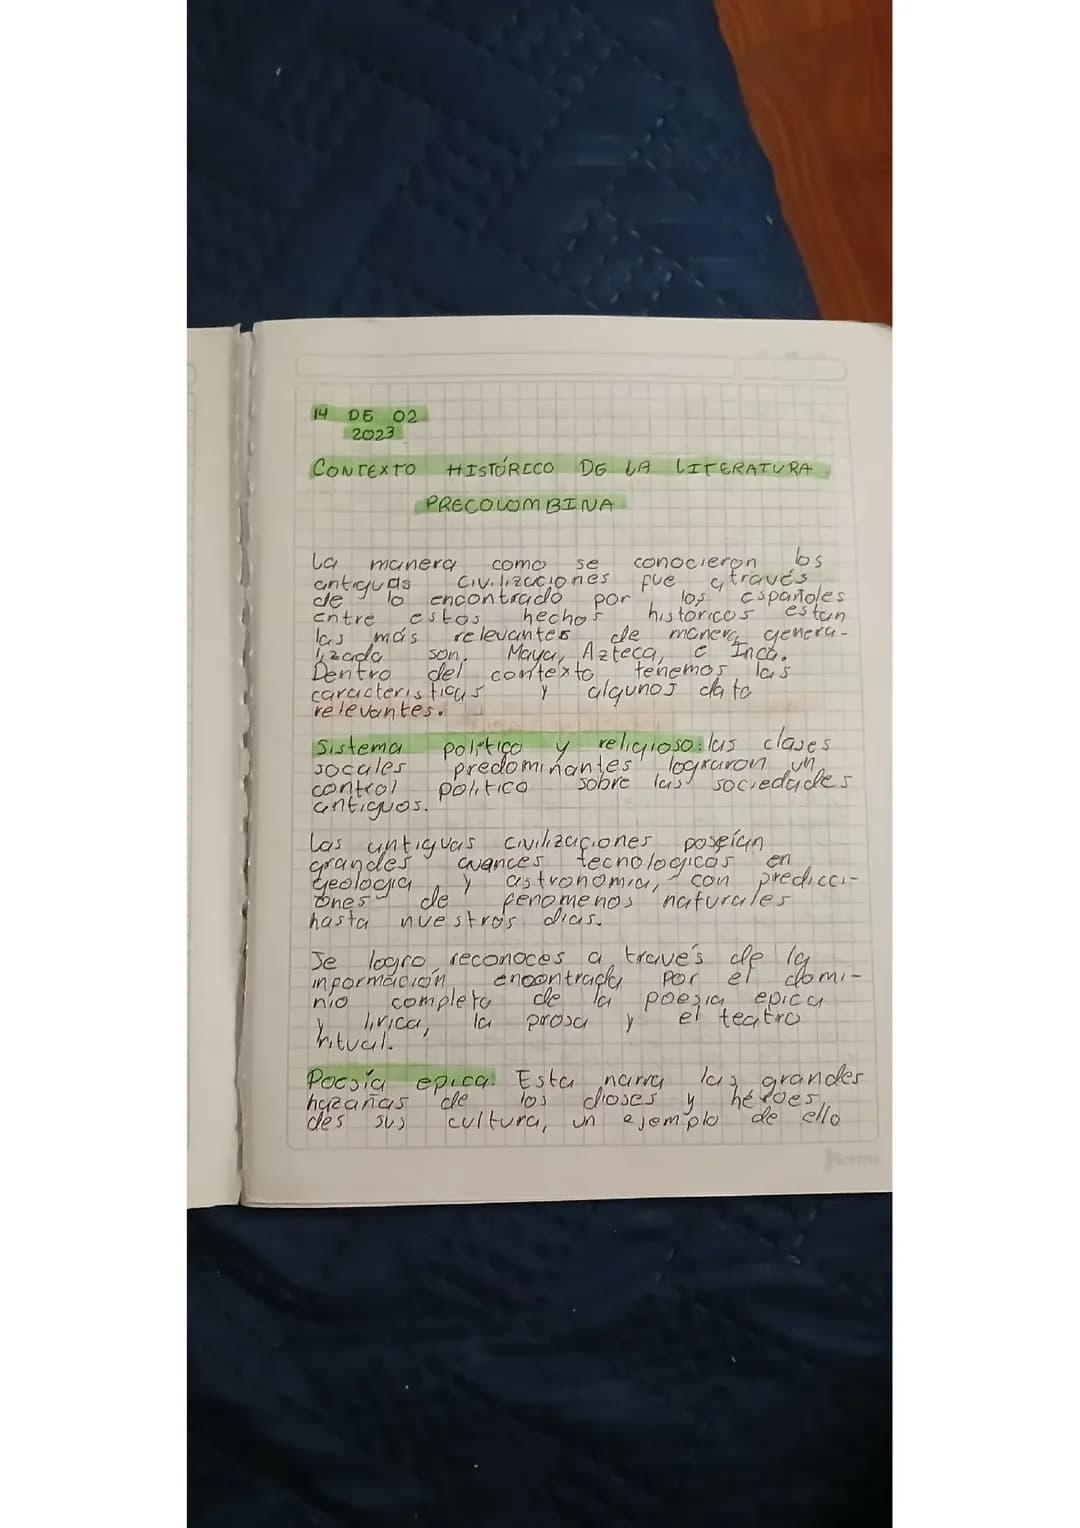 14 DE 02
2023
CONTEXTO HISTÓRICO DE LA LITERATURA
PRECOLOMBINA
La manera como se conocieron los
antiguas civilizaciones fue através
de lo encontrado por los españoles
entre estos hechos históricos estan
las más relevantes de manera genera-
lizada son, Maya, Azteca, e Inca.
Dentro del contexto tenemos las
caracteristicas y algunos dato
relevantes.
Sistema politico y religioso: las clases
socales predominantes lograron un
control politico sobre las sociedades
antiguos.
Las antiguas civilizaciones poseían
grandes avances tecnologicos en
geologia y astronomia, con predicci-
ones de fenomenos naturales
hasta nuestros dias.
Se logro reconoces a través de la
información encontrada por el domi-
nio completo de la poezia epica
y lirica, la prosa y el teatro
ritual.
Poesía epica: Esta narra las grandes
hazañas de los dioses y héroes,
des sus cultura, un ejemplo de ello
Norma